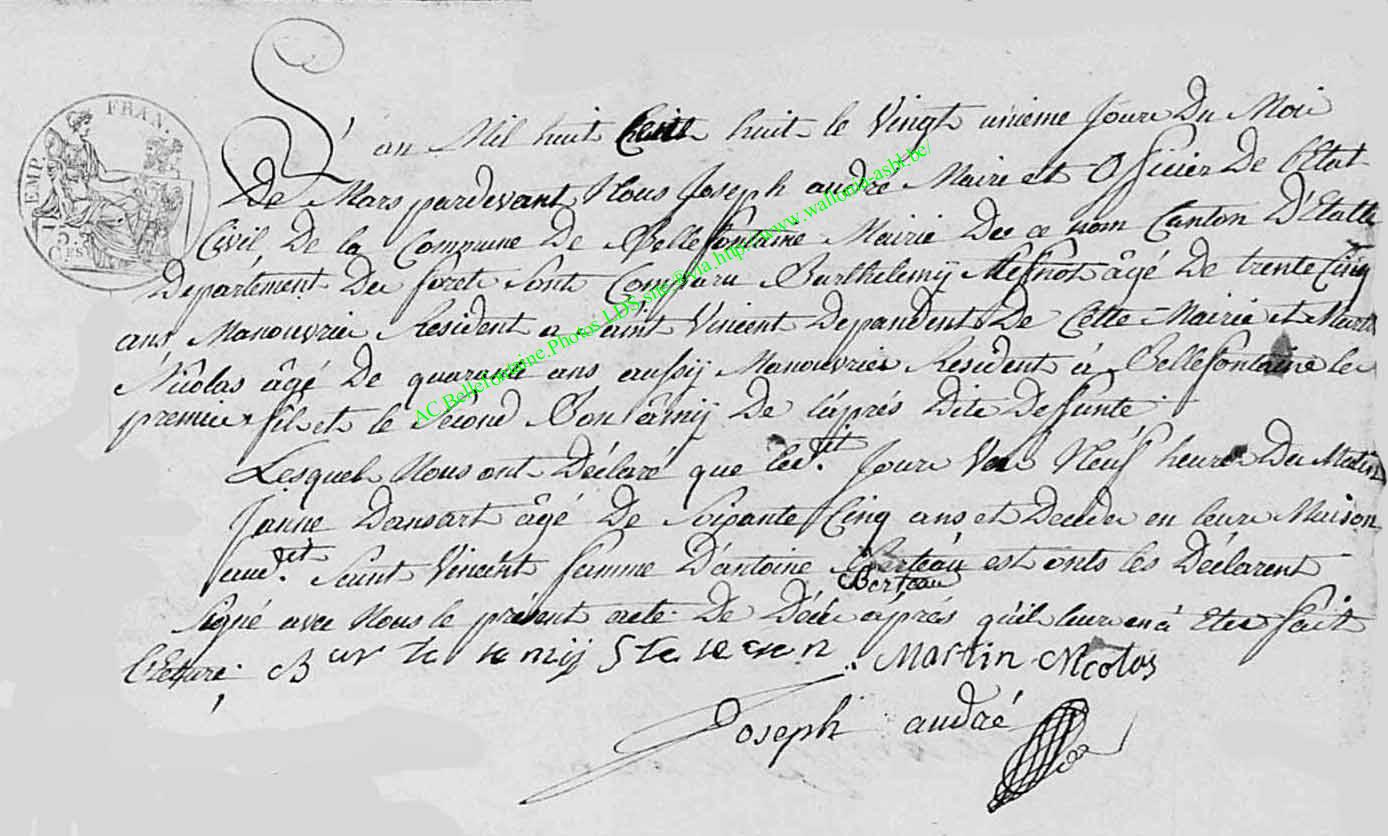 EMP. FRAN.
5.
C.ES
L'an Mil huit Cent huit le Vingt unieme Jour Du Moi
De Mars pardevant Nous Joseph andré Maire et Officier De l'Etat
Civil De la Commune De Bellefontaine Mairie De ce nom Canton D'Etalle
Departement Des forets Sont Comparu Barthelemij âgé De trente Cinq
ans Manouvrie Resident a Saint Vincent Dependent De Cette Mairie et Martin
Nicolas âgé De quarante ans aussij Manouvrier Resident à Bellefontaine le
premier fils et le Second Bon âmij De l'âprés Dite Deffunte
Lesquel Nous ont Déclaré que led.it Jour Ver Neuf heures Du Matin
Janne Dansart âgé De Soixante Cinq ans et Decidée en leure Maison
aud.it Saint Vincent famme D'antoine Berteau est onts les Déclarent
Berteau
Signé avec Nous le présent acte De Décé âprés qu'il leur en à Eter fait
Lecture. Martin Nicolas
Joseph andré
AC.Bellefontaine.Photos.LDS.site®via.http://www.wallonia-asbl.be/